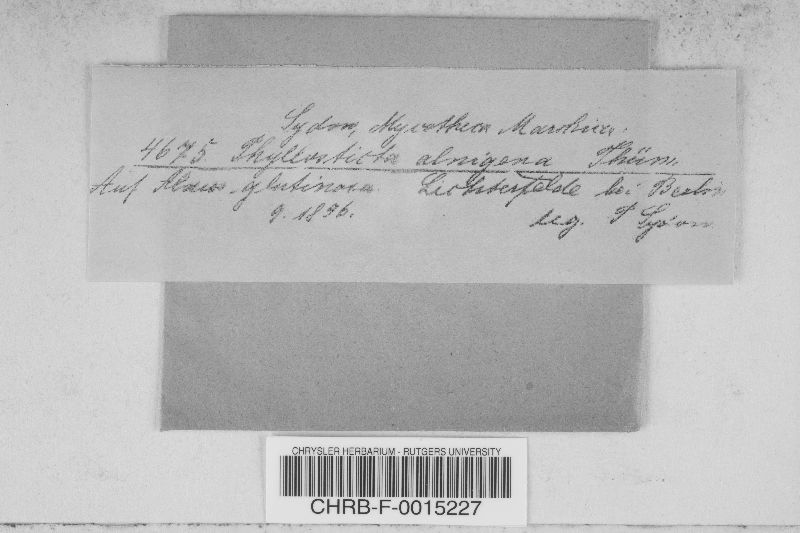 Sydow, Mycotheca Marchica.
4675. Phyllosticta alnigena Thüm.
Auf Alnus glutinosa. Lichterfelde bei Berlin
9. 1896. leg. P Sydow
CHRYSLER HERBARIUM - RUTGERS UNIVERSITY
CHRB-F-0015227